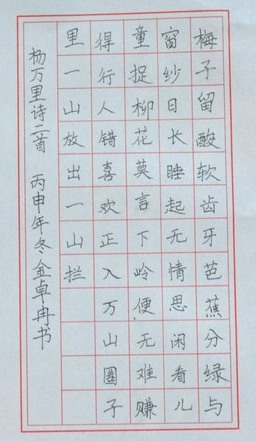 梅子留酸软齿牙芭蕉分绿与
窗纱日长睡起无情思闲看儿
童捉柳花莫言下岭便无难赚
得行人错喜欢正入万山圈子
里一山放出一山拦
杨万里诗二首 丙申年冬金卓冉书